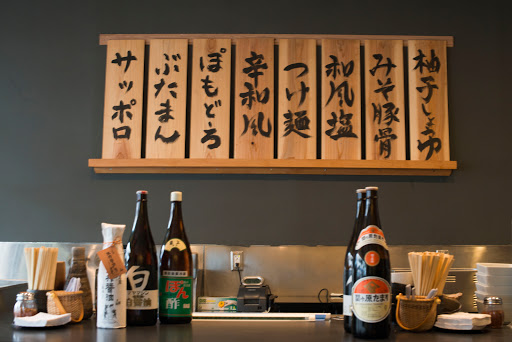 柚子しょうゆ
みそ豚骨
和風塩
つけ麺
辛和風
ぽもどろ
ぶたまん
サッポロ
白
ぽん酢